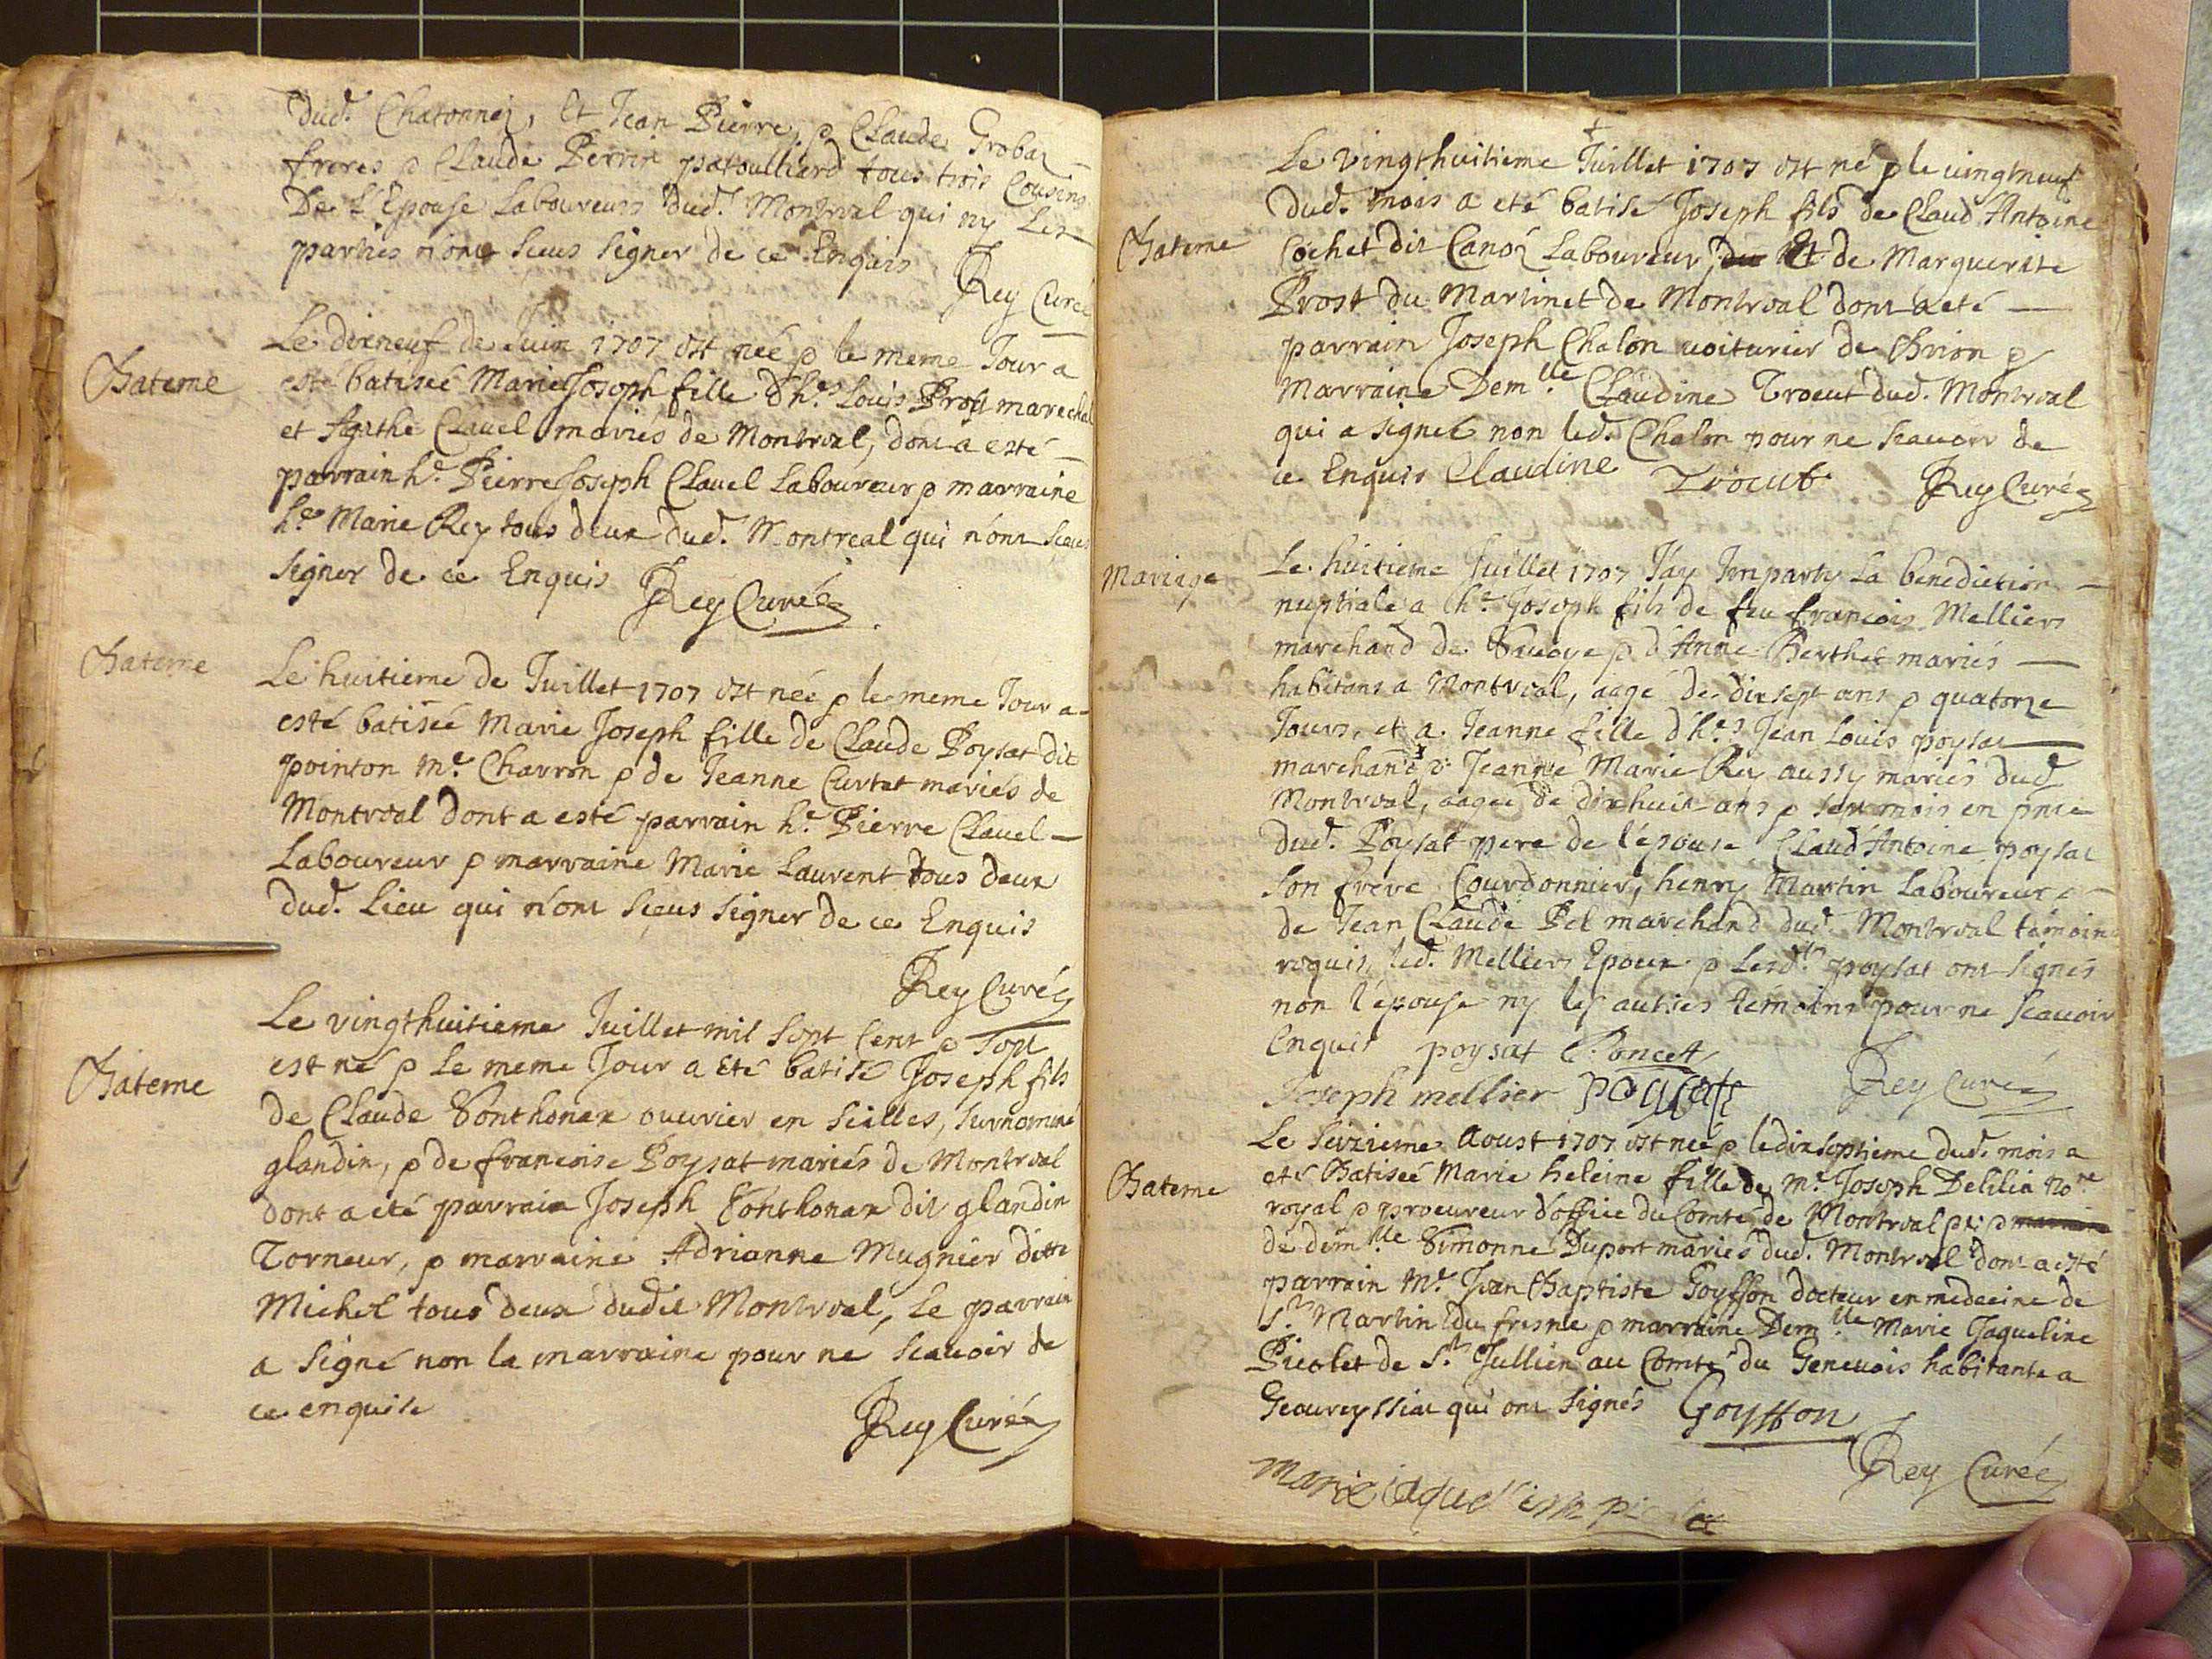 dud. Chatonnaz, et Jean Pierre, p Claude Grobaz
freres p Claude Perrin patoulliard tous trois Cousins
De l'Epouse Laboureurs dud. Montreal qui ny Les
parties n'ont sceus signer de ce Enquis
Rey Curé
Bateme
Le dixneuf de Juin 1707 est neé p le meme Jour a
esté batiseé Marie Joseph fille d'h.es Louis Prost marechal
et Agathe Clavel mariés de Montreal, dont a esté
parrain h.e Pierre Joseph Clavel Laboureur p marraine
h.e Marie Rey tous deux dud. Montreal qui n'ont sceus
signer de ce Enquis Rey Curé
Bateme
Le huitieme de Juillet 1707 est neé p le meme Jour a
esté batiseé Marie Joseph fille de Claude Poysat dit
pointon m.e Charron p de Jeanne Curtet mariés de
Montreal dont a esté parrain h.e Pierre Clavel
Laboureur p marraine Marie Laurent tous deux
dud. Lieu qui n'ont sceus signer de ce Enquis
Rey Curé
Bateme
Le vingthuitieme Juillet mil sept cent p sept
est né p Le meme Jour a eté batisé Joseph fils
de Claude Tonthonax ouvrier en seilles, surnommé
glandin, p de francoise Poysat mariés de Montreal
dont a eté parrain Joseph Tonthonax dit glandin
Torneur, p marraine Adrianne Mugnier ditte
Michel tous deux dudit Montreal, Le parrain
a signé non la marraine pour ne scavoir de
ce enquise
Rey Curé
Le vingthuitieme Juillet 1707 est né p le vingtneuf
dud. mois a eté batisé Joseph fils de Claud Antoine
Bateme
Cochet dit Canoz Laboureur, du Et de Marguerite
Prost du Martinet de Montreal dont a eté
parrain Joseph Chalon voiturier de Brion p
Marraine Dem.lle Claudine Trocut dud. Montreal
qui a signeé non led. Chalon pour ne scavoir de
ce Enquis Claudine Trocut Rey Curé
Mariage
Le huitieme Juillet 1707 J'ay Imparty La benediction
nuptiale a h.e Joseph fils de feu francois Melliers
marchand de Savoye p d'Anne Berthet mariés
habitans a Montreal, aagé de dixsept ans p quatorze
Jours, et a Jeanne fille d'h.es Jean Louis poysat
marchand p Jeanne Marie Rey aussy mariés dud.
Montreal, aageé de dixhuit ans p sept mois en pnce
dud. Poysat pere de l'épouse Claud Antoine poysat
son frere Courdonnier, henry Martin Laboureur
de Jean Claude Pel marchand dud. Montreal témoins
requis, led. Melliers Epoux p Lesd.ts poysat ont signés
non l'épouse ny les autres temoins pour ne scavoir
Enquis poysat Poncet
Joseph mellier poysat Rey Curé
Bateme
Le seizieme Aoust 1707 est neé p le dixseptieme dud. mois a
eté Batiseé Marie heleine fille de m.e Joseph Delilia no.re
royal p procureur d'office du Comté de Montreal p
de dem.lle Simonne Duport mariés dud. Montreal dont a esté
parrain M.r Jean Baptiste Goyffon docteur en medecine de
S.t Martin du fresne p marraine Dem.lle Marie Jaqueline
Picolet de S.t Jullien au Comté du Genevois habitante a
Geovreyssiat qui ont signés Goyffon
Rey Curé
Marie iaqueline